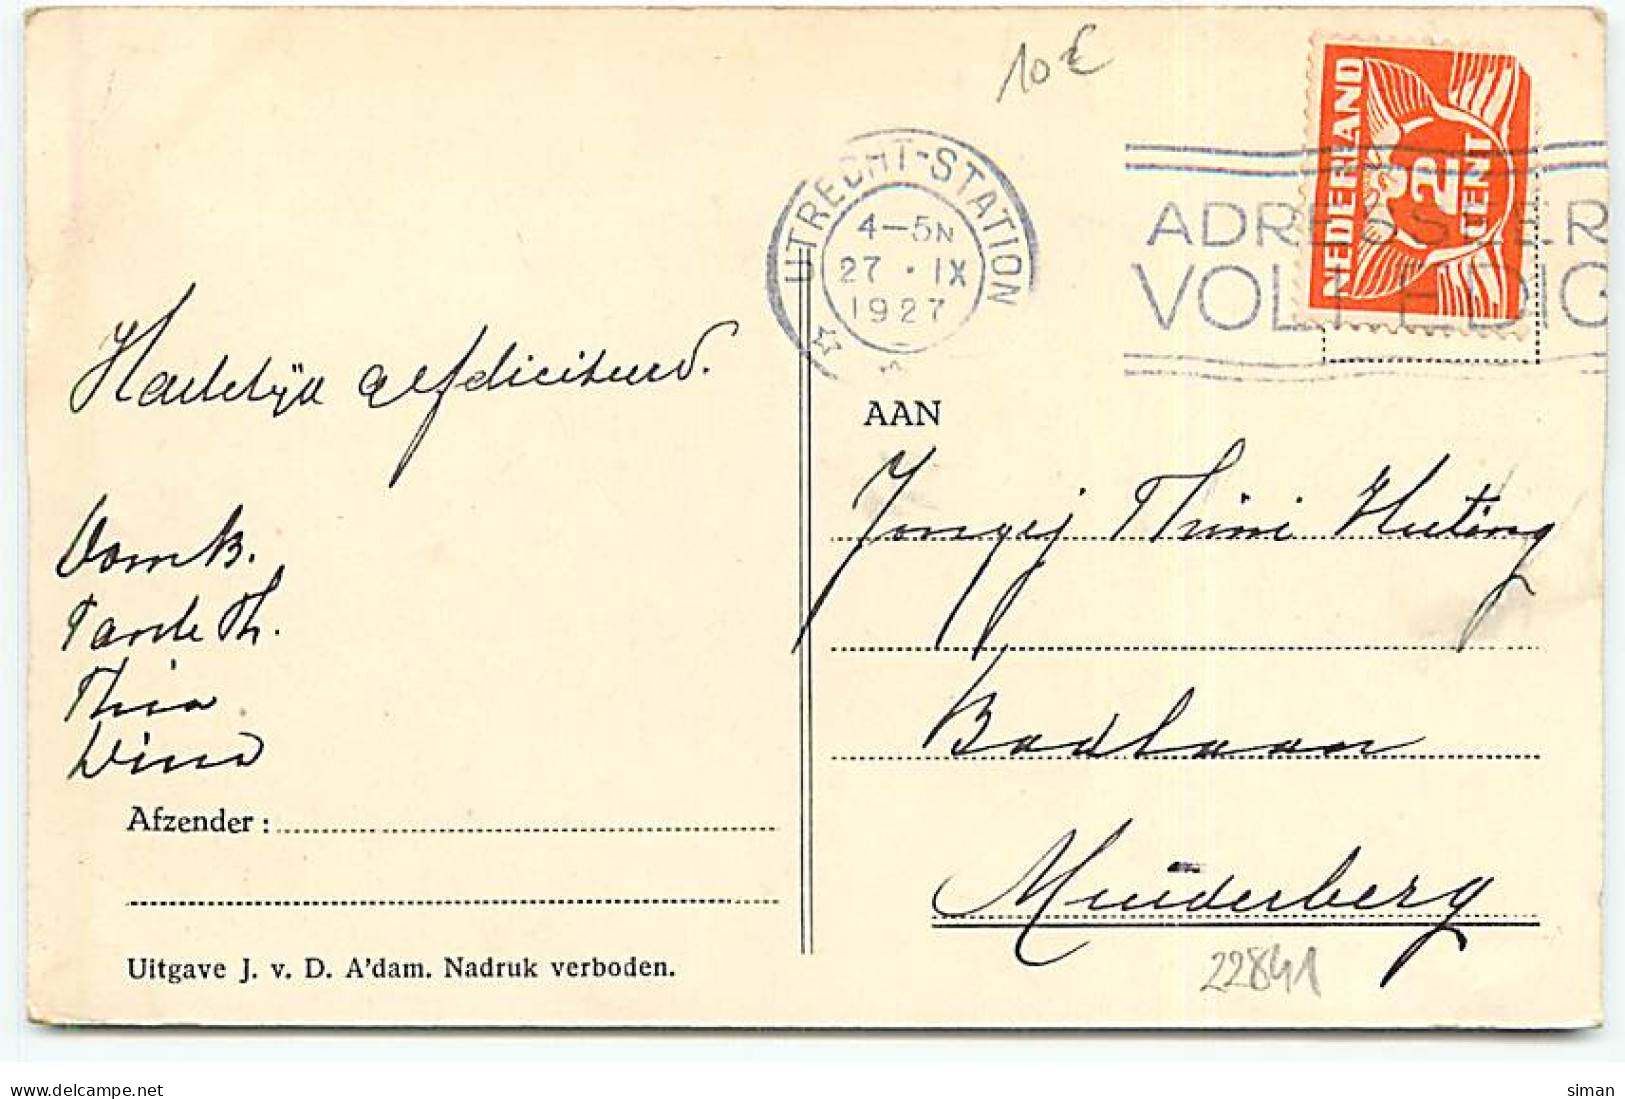 10 €
UTRECHT-STATION
4-5N
27 · IX
1927
NEDERLAND
2
CENT
ADRESSEER
VOLLEDIG
Hartelijk gefeliciteerd.
AAN
Jongej Thini Huting
Badlaan
Muiderberg
Oom B.
Tante Th.
Thia
Wim
Afzender :
Uitgave J. v. D. A'dam. Nadruk verboden.
22841
delcampe.net
siman